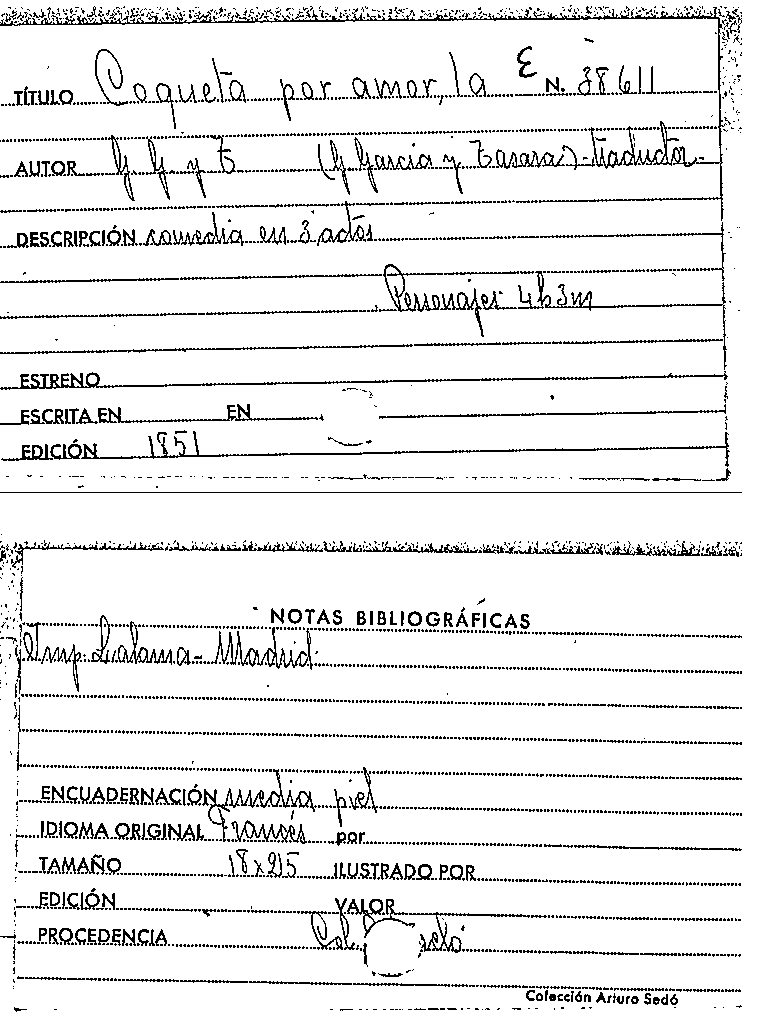 TÍTULO Coqueta por amor, la E N. 38611
AUTOR G. G. y T (G. García y Tasara)-traductor-
DESCRIPCIÓN comedia en 3 actos
Personajes 4h3m
ESTRENO
ESCRITA EN EN
EDICIÓN 1851
NOTAS BIBLIOGRÁFICAS
Imp. Lalama-Madrid.
ENCUADERNACIÓN media piel
IDIOMA ORIGINAL Francés por
TAMAÑO ILUSTRADO POR
EDICIÓN VALOR
PROCEDENCIA Col.
Colección Arturo Sedó